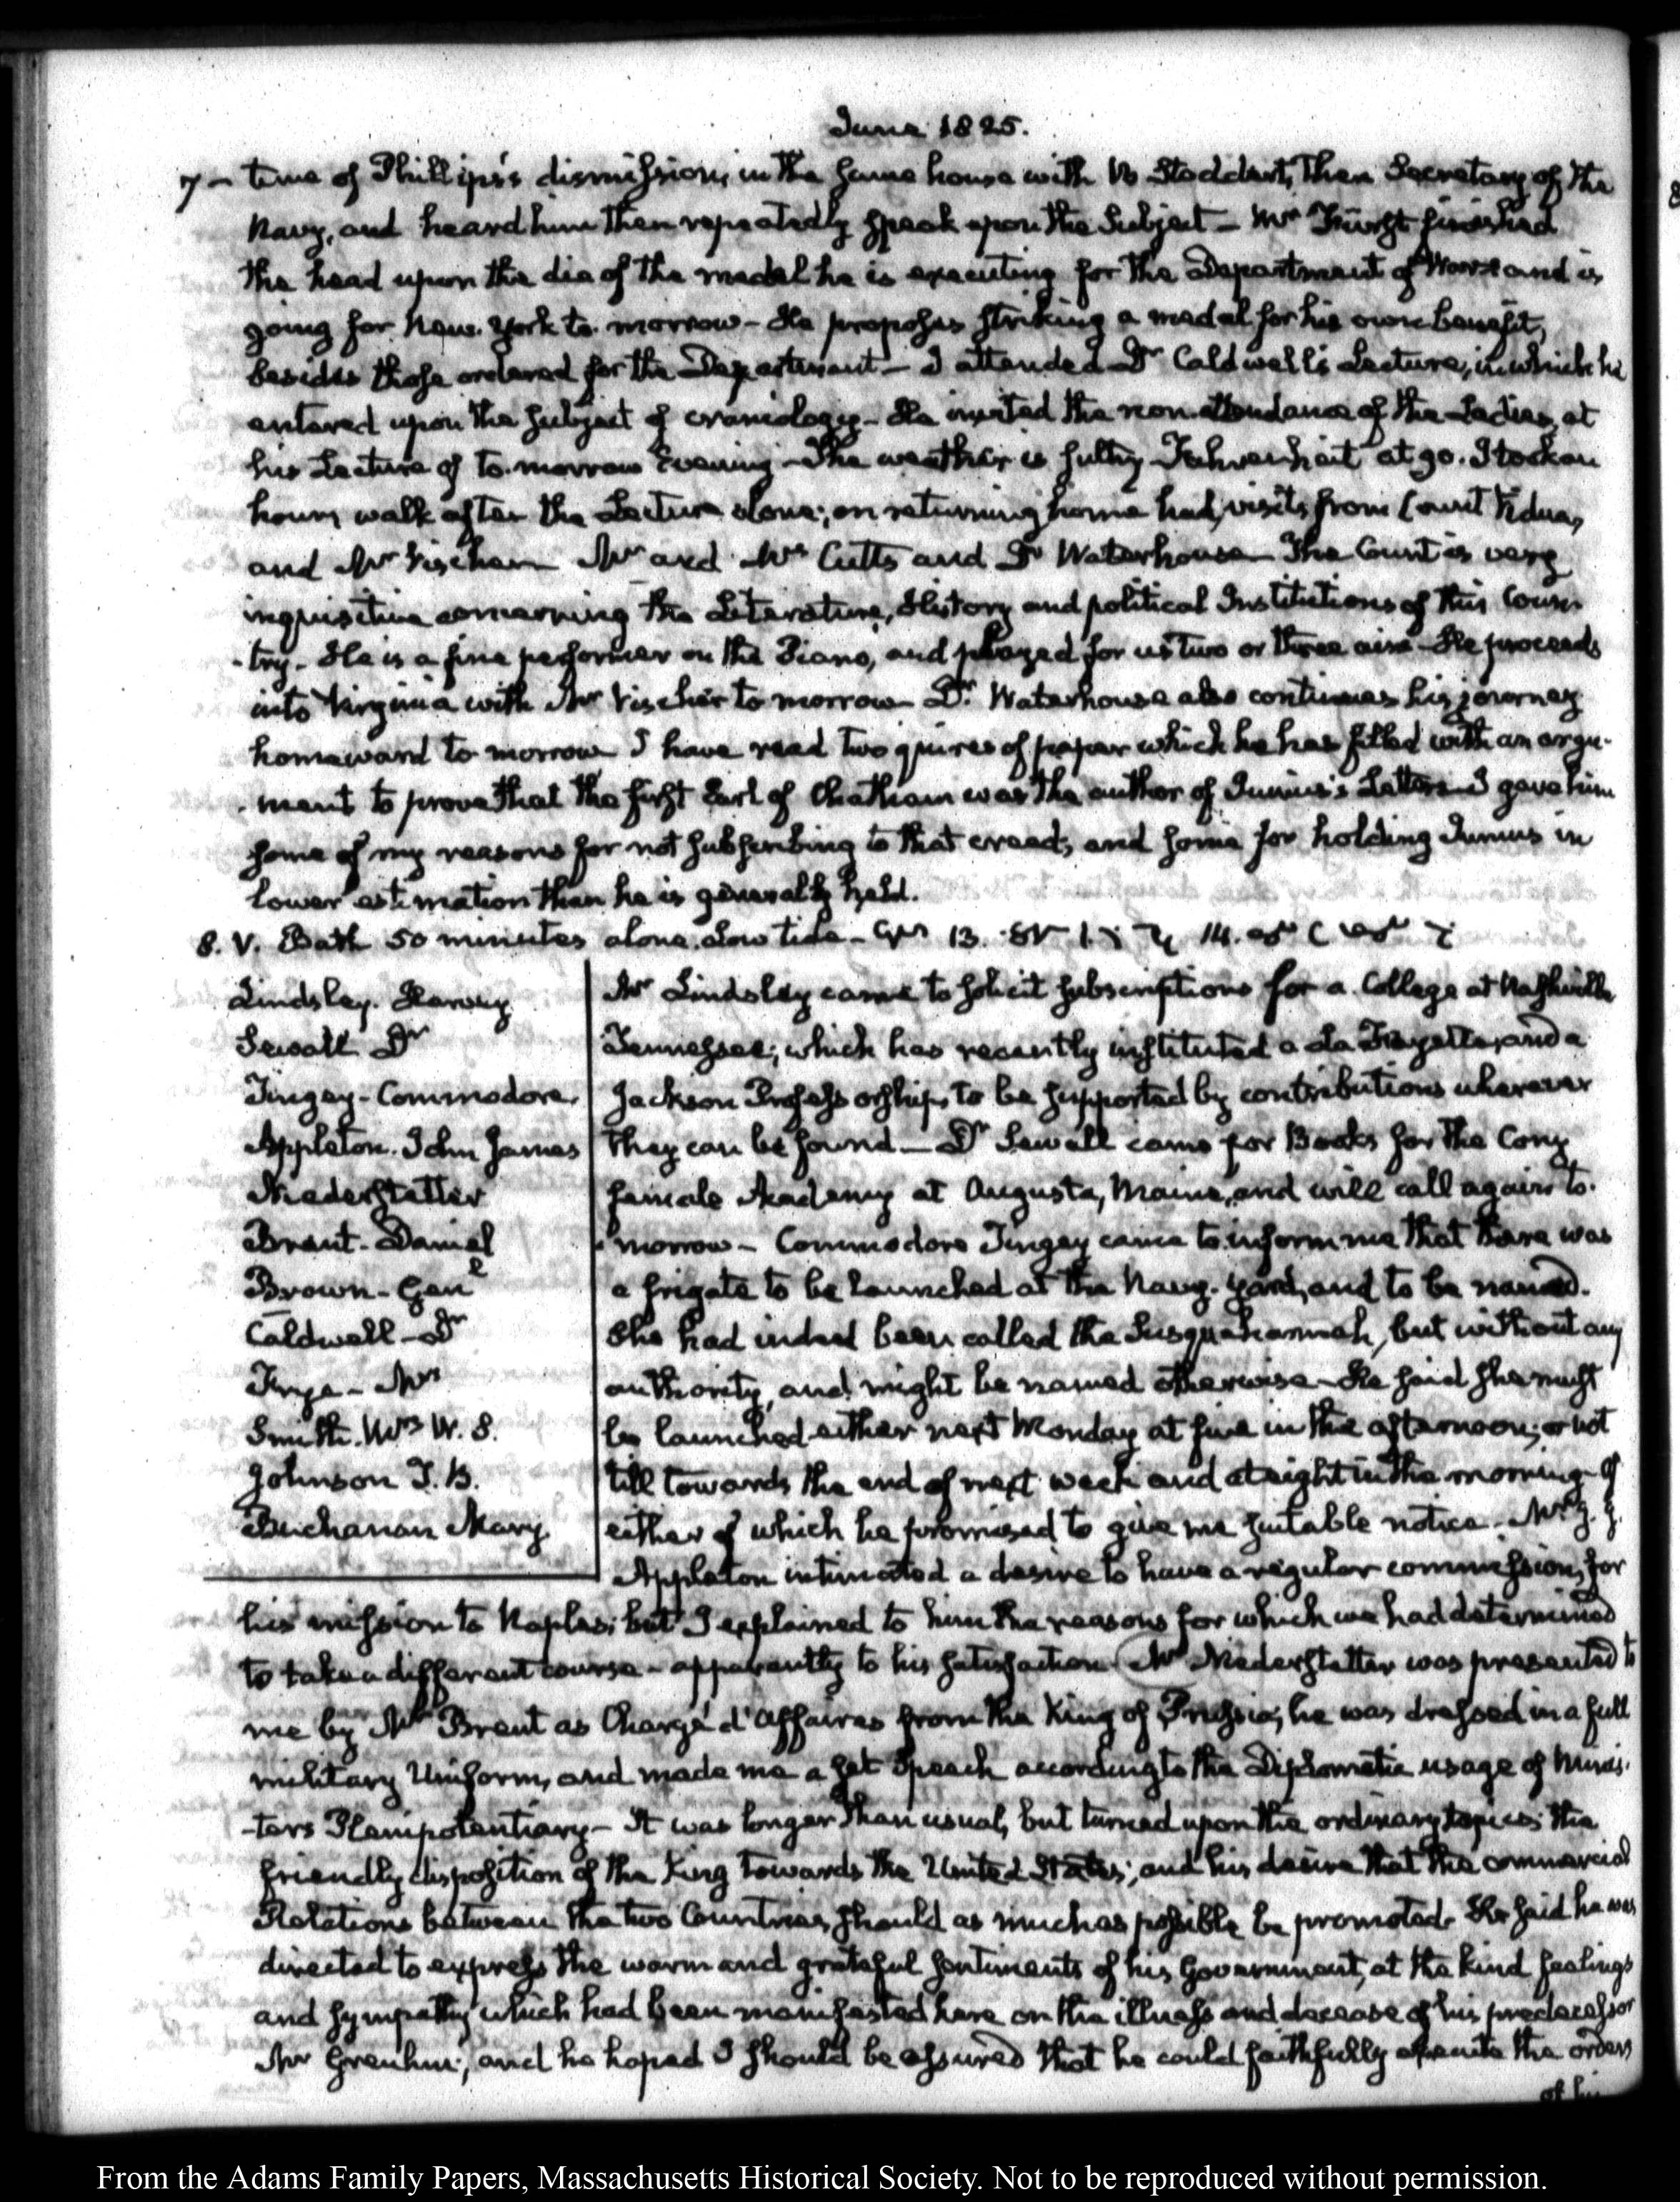 June 1825.
7 – time of Phillips's dismission, in the same house with Mr Stoddert, then Secretary of the
Navy, and heard him then repeatedly speak upon the subject – Mr Fürst finished
the head upon the die of the medal he is executing for the Department of War and is
going for New-York to-morrow – He proposes striking a medal for his own benefit,
besides those ordered for the Department – I attended Dr Caldwell's Lecture, in which he
entered upon the subject of craniology – He invited the non-attendance of the Ladies, at
his Lecture of to-morrow Evening – The weather is sultry Fahrenheit at 90. I took an
hours walk after the Lecture alone; on returning home had visits from Count Vidua,
and Mr Vischer Mr and Mrs Cutts and Dr Waterhouse – The Count is very
inquisitive concerning the Literature, History and political Institutions of this Coun-
-try – He is a fine performer on the Piano, and played for us two or three airs – He proceeds
into Virginia with Mr Vischer to morrow – Dr Waterhouse also continues his journey
homeward to-morrow I have read two quires of paper which he has filled with an argu-
-ment to prove that the first Earl of Chatham was the author of Junius's Letters – I gave him
some of my reasons for not subscribing to that creed, and some for holding Junius in
lower estimation than he is generally held.
8. V. Bath 50 minutes alone. low tide – 13. 14.
Lindsley. Harvey
Sewall Dr
Tingey – Commodore
Appleton. John James
Niederstetter
Brent – Daniel
Brown – Genl
Caldwell – Dr
Frye – Mrs
Smith. Mrs W. S.
Johnson T. B.
Buchanan Mary
Mr Lindsley came to solicit subscriptions for a College at Nashville
Tennessee; which has recently instituted a La Fayette, and a
Jackson Professorship, to be supported by contributions wherever
they can be found – Dr Sewall came for Books for the Cony
female Academy at Augusta, Maine, and will call again to-
-morrow – Commodore Tingey came to inform me that there was
a frigate to be launched at the Navy-Yard, and to be named.
She had indeed been called the Susquehannah, but without any
authority, and might be named otherwise – He said she must
be launched either next Monday at five in the afternoon; or not
till towards the end of next week and at eight in the morning – of
either of which he promised to give me suitable notice – Mr J. J.
Appleton intimated a desire to have a regular commission, for
his mission to Naples; but I explained to him the reasons for which we had determined
to take a different course – apparently to his satisfaction Mr Niederstetter was presented to
me by Mr Brent as Chargé d'Affaires from the King of Prussia; he was dressed in a full
military Uniform, and made me a set speech according to the Diplomatic usage of Minis-
-ters Plenipotentiary – It was longer than usual, but turned upon the ordinary topics; the
friendly disposition of the King towards the United States; and his desire that the commercial
Relations between the two Countries, should as much as possible be promoted. He said he was
directed to express the warm and grateful sentiments of his Government, at the kind feelings
and sympathy which had been manifested here on the illness and decease of his predecessor
Mr Greuhm; and he hoped I should be assured that he could faithfully execute the orders
of his